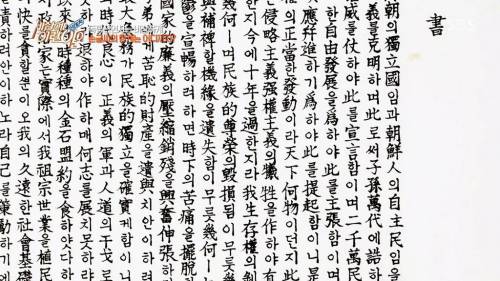 書
朝의獨立國임과朝鮮人의自主民임을
義를克明하며此로써子孫萬代에誥하
威를仗하야此를宣言함이며二千萬民
한自由發展을爲하야此를主張함이며
應幷進하기爲하야此를提起함이니是
의正當한發動이라天下何物이던지此
侵略主義强權主義의犧牲을作하야有
한지今에十年을過한지라我生存權의剝
幾何ㅣ며民族的尊榮의毁損됨이무릇幾
과補裨할機緣을遺失함이무릇幾何ㅣ
鬱을宣暢하려하면時下의苦痛을擺脫
國家廉義의壓縮銷殘을興奮伸張하
子弟에게苦恥的財産을遺與치안이하려
急務가民族的獨立을確實케함이니
時代良心이正義의軍과人道의干戈로
退하야作하매何志를展치못하랴
以來時時種種의金石盟約을食하얏다하
政治家는實際에서我祖宗世業을
快를貪할뿐이오我의久遠한社會基礎
責하려안이하노라自己를策勵하기에
SBS